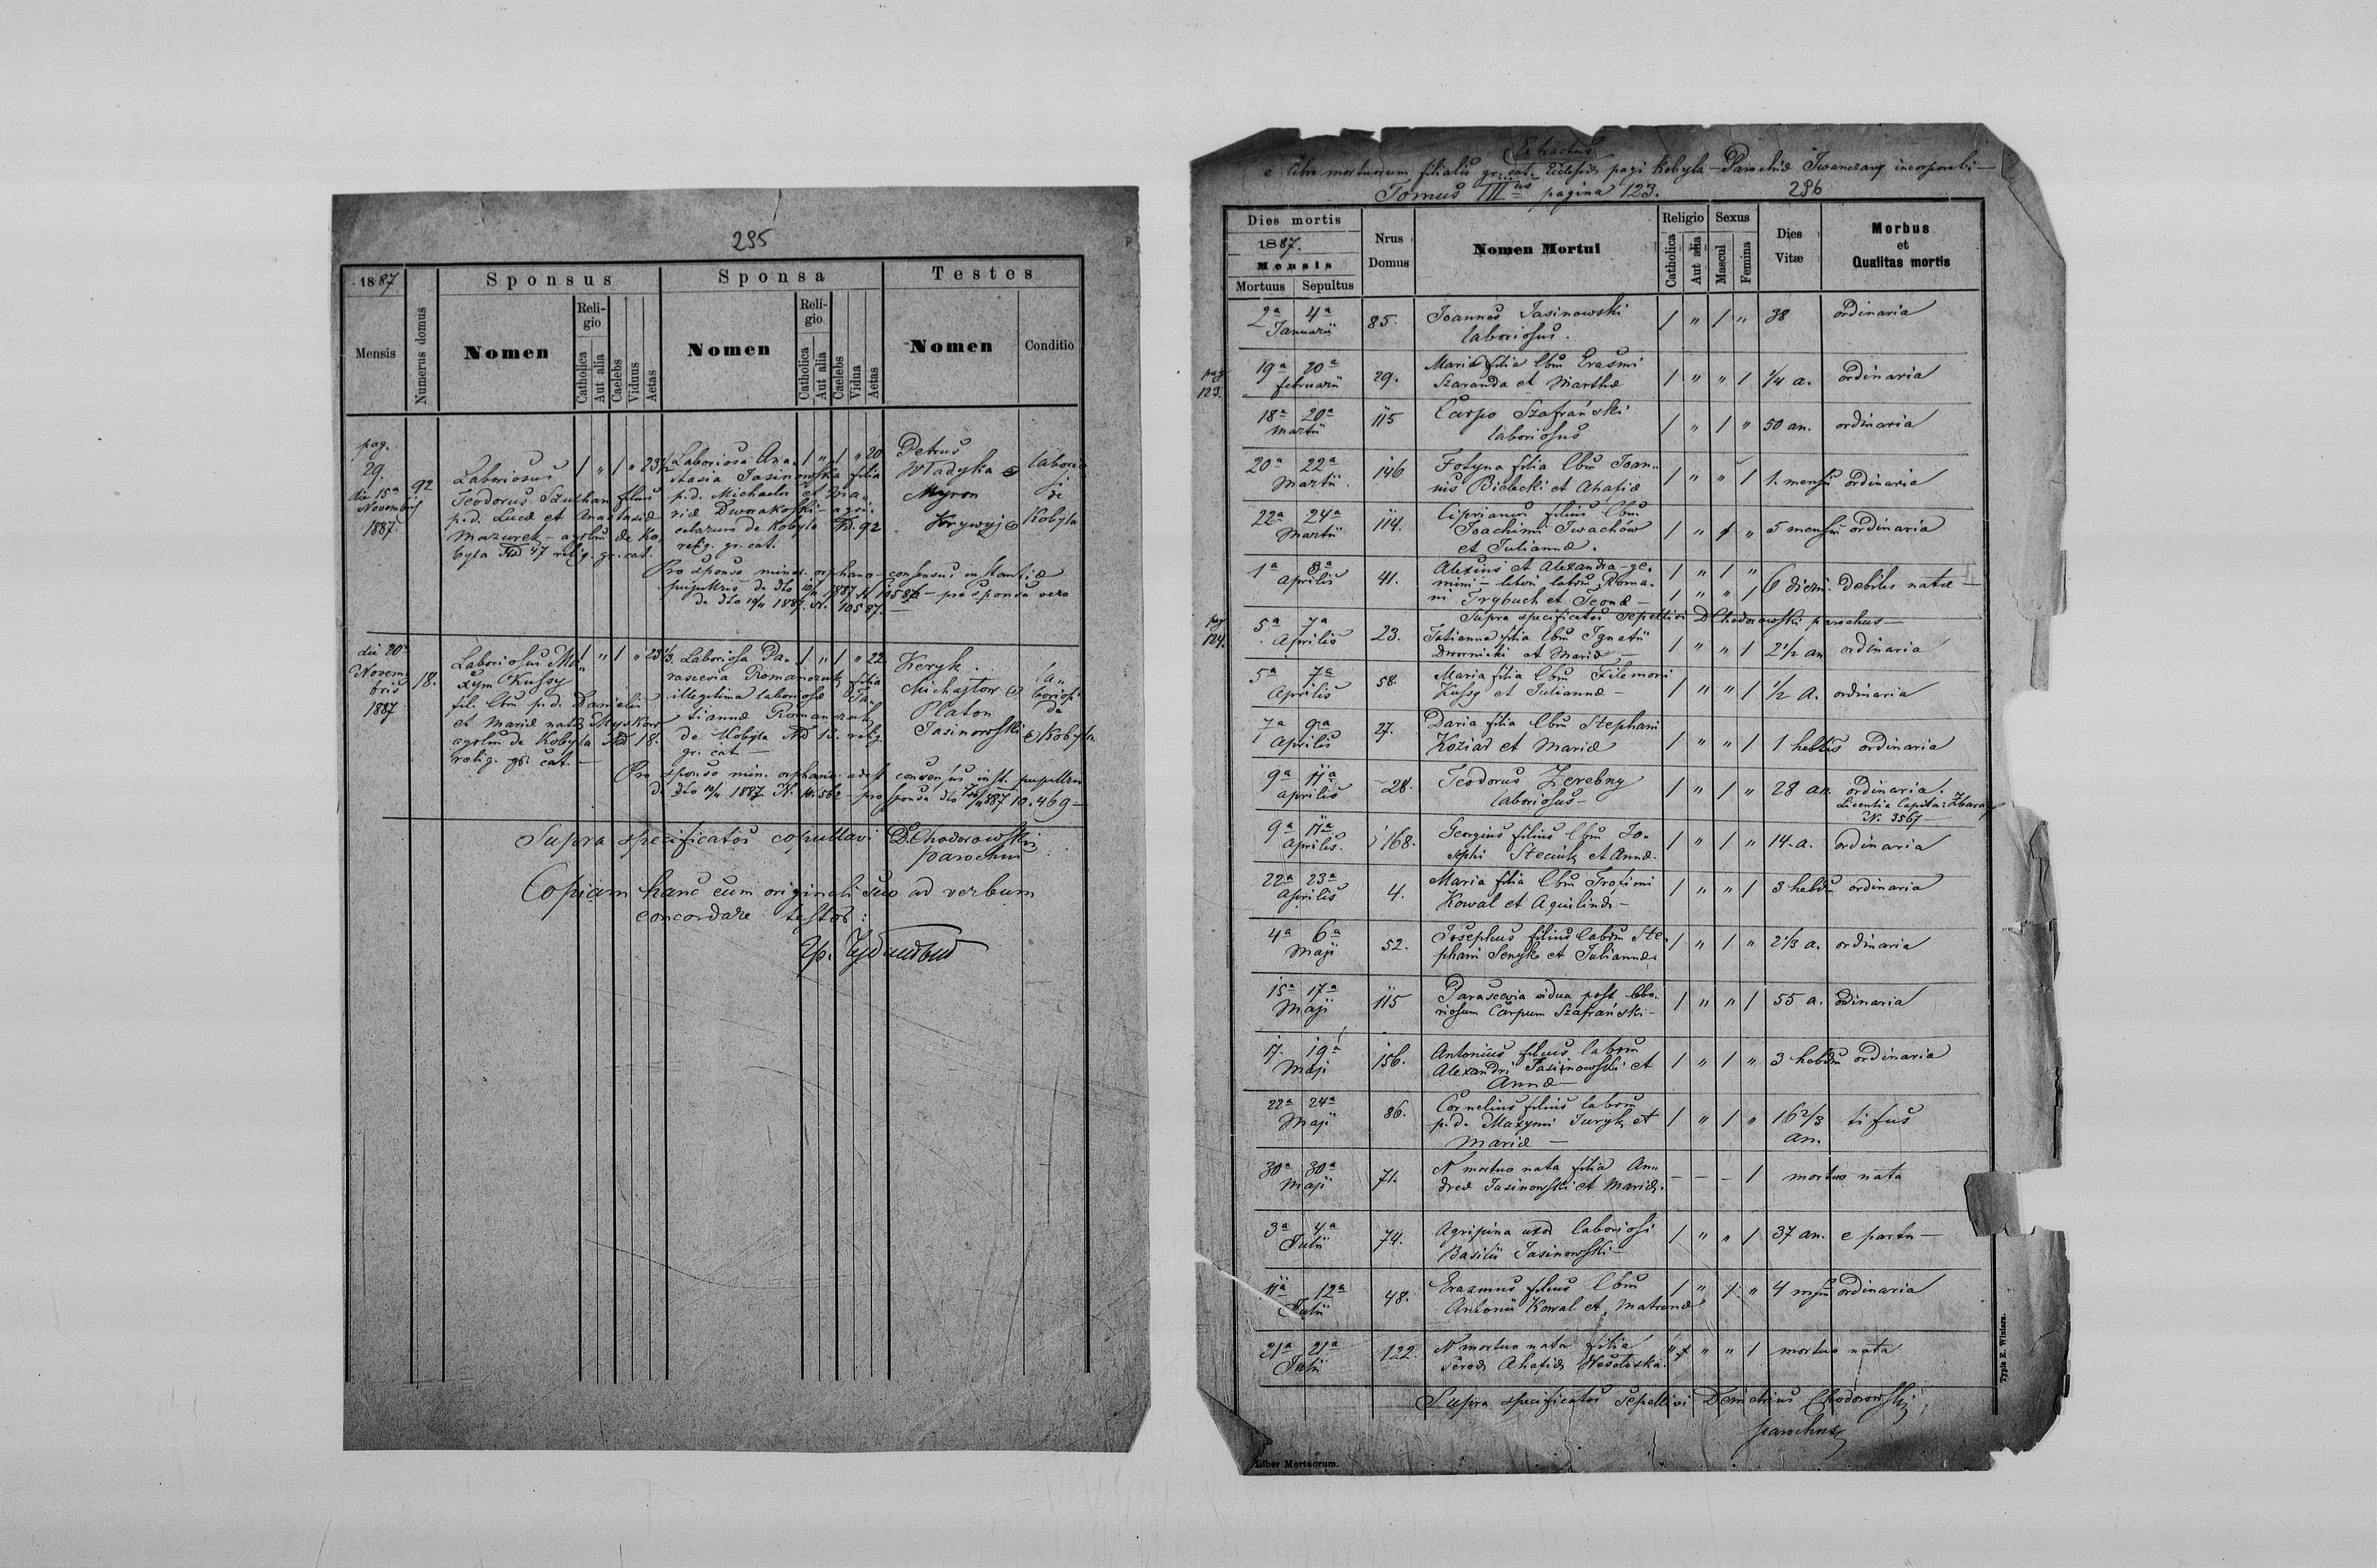 295
1887
Sponsus
Sponsa
Testes
Mensis
Numerus domus
Nomen
Religio
Catholica
Aut alia
Caelebs
Viduus
Aetas
Nomen
Religio
Catholica
Aut alia
Caelebs
Vidua
Aetas
Nomen
Conditio
pag.
29.
die 15a
Novembris
1887.
92
Laboriosus
Teodorus Szuthan filius
p.d. Lucæ et Anastasiæ
Mazurek - agrlũ de Ko,
byla ND 47 relig. gr. cat.
/ " / " 23½
Laboriosa Ana,
stasia Jasinowska filia
p.d. Michaelis et Ma,
riæ Dworakoski - agri,
colarum de Kobyla ND. 92
relig. gr. cat.
/ " / " 20
Petrus
Wladyka
Myron
Krywyj
laborio
si
de
Kobyla
Pro sponso minor. orphano - consensus instantiæ
pupillaris de dto 10/11 1887 - pro sponsa vero
de dto 10/11 1887. N. 10587 -
die 20a
Novem,
bris
1887
18.
Laboriosus Ma,
xym Kussy
fil. lbũ p.d. Danielis
et Mariæ natæ Myskow
agrlũ de Kobyla ND 18.
relig. gr. cat. -
/ " / " 23⅓
Laboriosa Pa,
rascevia Romanczuk filia
illegitima laboriosæ Ta,
tiannæ Romanczuk
de Kobyla ND 13. relig.
gr. cat. -
/ " / " 22
Keryk
Michajlow
Platon
Jasinowski
la,,
boriosi
de
Kobyla
Pro sponso min. orphano adest consensus inst. pupillar
de dto 10/11 1887 N. 10.562 - pro sponsa dto 887 10.469 -
Supra specificatos copulavi D. Chodorowski
parochus
Copiam hanc cum originali suo ad verbum
concordare testor:
Extractus
e libro mortuorum filialis gr. cat. Ecclesiæ pagi Kobyla - Parochiæ Iwanczany incorporati -
Tomus III us pagina 123.
296
Dies mortis
1887.
Mensis
Mortuus
Sepultus
Nrus Domus
Nomen Mortui
Religio
Catholica
Aut alia
Sexus
Mascul
Femina
Dies Vitæ
Morbus
et
Qualitas mortis
2a 4a
Januarii
85.
Joannes Jasinowski
laboriosus.
/ " / "
38
ordinaria
pag
123.
19a 20a
februarii
29.
Maria filia lbũ Erasmi
Szaranda et Marthæ
/ " " /
¼ a.
ordinaria
18a 20a
Martii
115
Carpo Szafrański
laboriosus
/ " / "
50 an.
ordinaria
20a 22a
Martii
146
Fotyna filia lbũ Joan,,
nis Bielecki et Ahafiæ
/ " " /
1. mensis
ordinaria
22a 24a
Martii
114.
Ciprianus filius lbũ
Joachimi Iwachów
et Juliannæ.
/ " / "
5 mensiũ
ordinaria
1a 3a
Aprilis
41.
Alexius et Alexandra - ge,
mini - liberi labrũ Roma,
ni Trybuch et Teonæ -
/ " / "
/ " " /
6 dierũ
Debiles natæ -
Supra specificatos sepelivi D Chodorowski parochus -
pag
124.
5a 7a
Aprilis
23.
Tatianna filia lbũ Ignatii
Dwornicki et Mariæ -
/ " " /
2½ an
ordinaria
5a 7a
Aprilis
58.
Maria filia lbũ Filemoni
Kussy et Juliannæ -
/ " " /
½ a.
ordinaria
7a 9a
Aprilis
27.
Daria filia lbũ Stephani
Koziar et Mariæ
/ " " /
1 hebdis
ordinaria
9a 11a
Aprilis
28.
Teodorus Zerebny
laboriosus -
/ " / "
28 an.
ordinaria.
Licentia Capita: Zbaraz
N. 3567
9a 11a
Aprilis.
168.
Georgius filius lbũ Jo,
sephi Steciuk et Annæ.
/ " / "
14. a.
ordinaria
22a 23a
Aprilis
4.
Maria filia lbũ Trofimi
Kowal et Aquilinæ -
/ " " /
3 hebdũ
ordinaria
4a 6a
Maji
52.
Josephus filius labrũ Ste,
phani Senyk et Juliannæ.
/ " / "
2⅓ a.
ordinaria
15a 17a
Maji
115
Parascevia vidua post labo,
riosum Carpum Szafrański -
/ " " /
55 a.
ordinaria
17. 19a
Maji
156.
Antonius filius labrũ
Alexandri Jasinowski et
Annæ -
/ " / "
3 hebdũ
ordinaria
22a 24a
Maji
86.
Cornelius filius labrũ
p.d. Maxymi Juryk et
Mariæ -
/ " / "
16⅔
an.
tifus
30a 30a
Maji
71.
N mortuo nata filia An,,
dreæ Jasinowski et Mariæ.
- - - /
mortuo nata
3a 4a
Julii
74.
Agripina uxor laboriosi
Basilii Jasinowski -
/ " " /
37 an.
e partu -
11a 12a
Julii
48.
Erazmus filius lbũ
Antonii Kowal et Matronæ
/ " / "
4 msũ
ordinaria
21a 21a
Julii
122.
N mortuo nata filia
servæ Ahafiæ Wesołoska.
" " " /
mortuo nata
Supra specificatos sepelivi Demetrius Chodorowski
parochus
Typis E. Winiarz.
Liber Mortuorum.